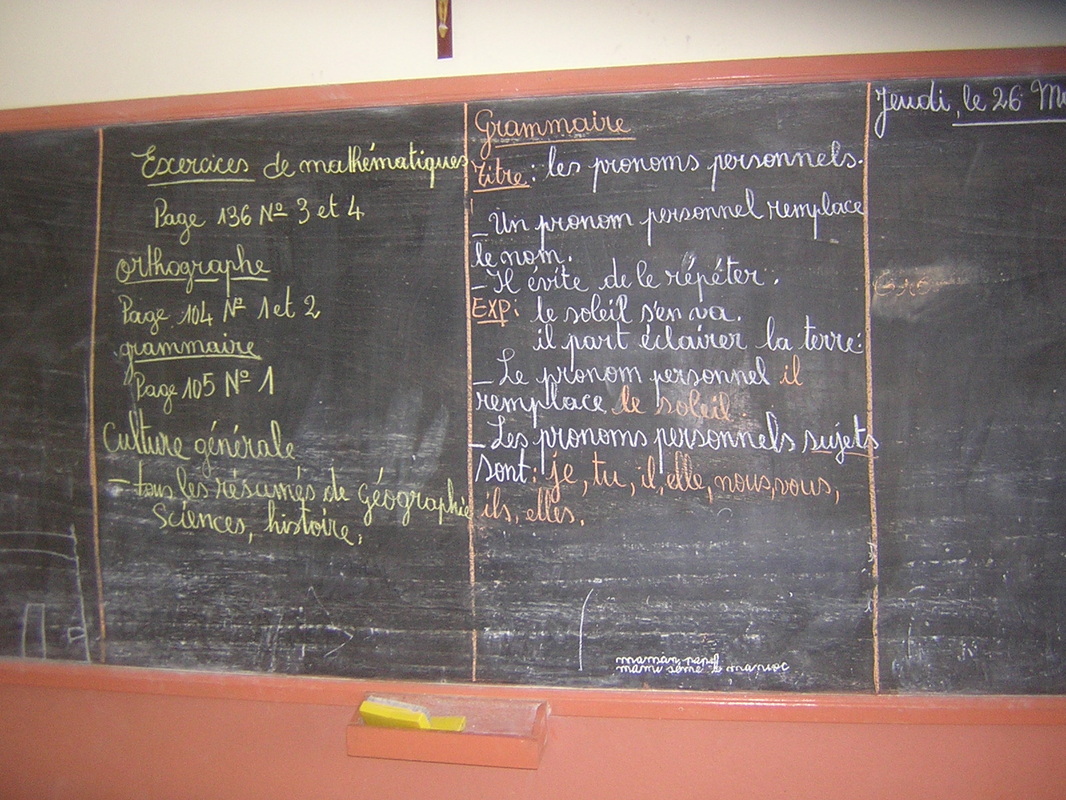 Exercices de mathématiques
Page 136 Nº 3 et 4
Orthographe
Page 104 Nº 1 et 2
grammaire
Page 105 Nº 1
Culture générale
- tous les résumés de géographie
Sciences, histoire.
Grammaire
Titre : les pronoms personnels.
- Un pronom personnel remplace
le nom.
- Il évite de le répéter.
EXP : le soleil s'en va.
il part éclairer la terre.
- Le pronom personnel il
remplace le soleil.
- Les pronoms personnels sujets
sont : je, tu, il, elle, nous, vous,
ils, elles.
maman, papa
mami sème le manioc
Jeudi, le 26